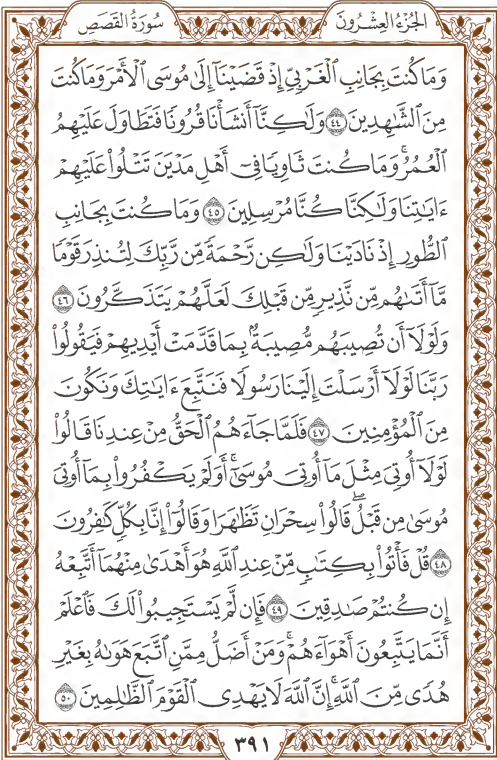 الجُزْءُ العِشْرُونَ
سُورَةُ القَصَصِ
وَمَا كُنتَ بِجَانِبِ ٱلْغَرْبِيِّ إِذْ قَضَيْنَآ إِلَىٰ مُوسَى ٱلْأَمْرَ وَمَا كُنتَ
مِنَ ٱلشَّٰهِدِينَ ٤٤ وَلَٰكِنَّآ أَنشَأْنَا قُرُونًا فَتَطَاوَلَ عَلَيْهِمُ
ٱلْعُمُرُ ۚ وَمَا كُنتَ ثَاوِيًا فِىٓ أَهْلِ مَدْيَنَ تَتْلُوا۟ عَلَيْهِمْ
ءَايَٰتِنَا وَلَٰكِنَّا كُنَّا مُرْسِلِينَ ٤٥ وَمَا كُنتَ بِجَانِبِ
ٱلطُّورِ إِذْ نَادَيْنَا وَلَٰكِن رَّحْمَةً مِّن رَّبِّكَ لِتُنذِرَ قَوْمًا
مَّآ أَتَىٰهُم مِّن نَّذِيرٍ مِّن قَبْلِكَ لَعَلَّهُمْ يَتَذَكَّرُونَ ٤٦
وَلَوْلَآ أَن تُصِيبَهُم مُّصِيبَةٌۢ بِمَا قَدَّمَتْ أَيْدِيهِمْ فَيَقُولُوا۟
رَبَّنَا لَوْلَآ أَرْسَلْتَ إِلَيْنَا رَسُولًا فَنَتَّبِعَ ءَايَٰتِكَ وَنَكُونَ
مِنَ ٱلْمُؤْمِنِينَ ٤٧ فَلَمَّا جَآءَهُمُ ٱلْحَقُّ مِنْ عِندِنَا قَالُوا۟
لَوْلَآ أُوتِىَ مِثْلَ مَآ أُوتِىَ مُوسَىٰٓ ۚ أَوَلَمْ يَكْفُرُوا۟ بِمَآ أُوتِىَ
مُوسَىٰ مِن قَبْلُ ۖ قَالُوا۟ سِحْرَانِ تَظَٰهَرَا وَقَالُوٓا۟ إِنَّا بِكُلٍّ كَٰفِرُونَ
٤٨ قُلْ فَأْتُوا۟ بِكِتَٰبٍ مِّنْ عِندِ ٱللَّهِ هُوَ أَهْدَىٰ مِنْهُمَآ أَتَّبِعْهُ
إِن كُنتُمْ صَٰدِقِينَ ٤٩ فَإِن لَّمْ يَسْتَجِيبُوا۟ لَكَ فَٱعْلَمْ
أَنَّمَا يَتَّبِعُونَ أَهْوَآءَهُمْ ۚ وَمَنْ أَضَلُّ مِمَّنِ ٱتَّبَعَ هَوَىٰهُ بِغَيْرِ
هُدًى مِّنَ ٱللَّهِ ۚ إِنَّ ٱللَّهَ لَا يَهْدِى ٱلْقَوْمَ ٱلظَّٰلِمِينَ ٥٠
٣٩١